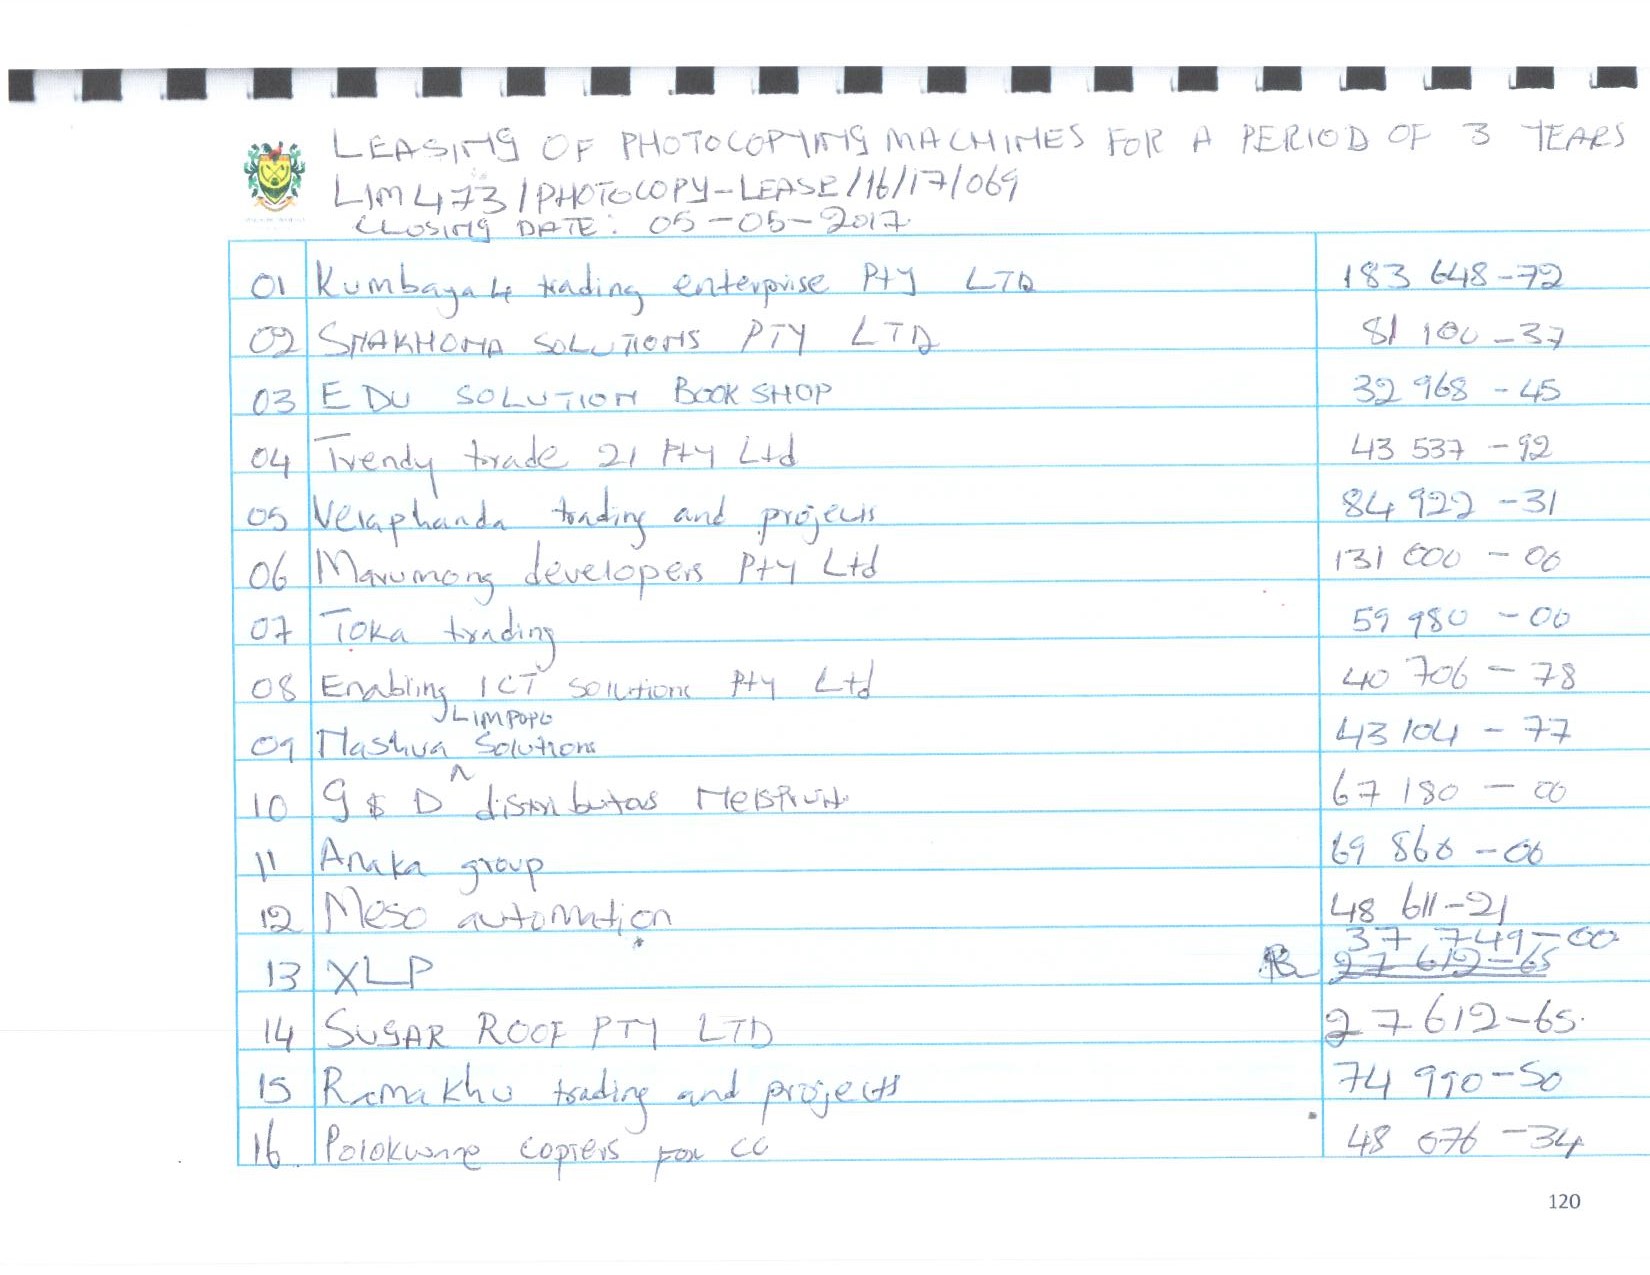 LEASING OF PHOTOCOPYING MACHINES FOR A PERIOD OF 3 YEARS
LIM473/PHOTOCOPY-LEASE/16/17/069
CLOSING DATE: 05-05-2017
01 Kumbaya 4 trading enterprise Pty LTD 183 648-72
02 SMAKHOMA SOLUTIONS PTY LTD 81 100-37
03 EDU SOLUTION BOOK SHOP 32 968-45
04 Trendy trade 21 Pty Ltd 43 537-92
05 Velaphanda trading and projects 84 922-31
06 Marumong developers Pty Ltd 131 000-00
07 Toka trading 59 980-00
08 Enabling ICT solutions Pty Ltd 40 706-78
LIMPOPO
09 Nashua Solutions 43 104-77
10 G $ D distributors Nelspruit 67 180-00
11 Anaka group 69 860-00
12 Meso automation 48 611-21
37 749-00
13 XLP 27 612-65
14 SUGAR ROOF PTY LTD 27 612-65
15 Ramakhu trading and projects 74 990-50
16 Polokwane copiers FOR CC 48 076-34
120